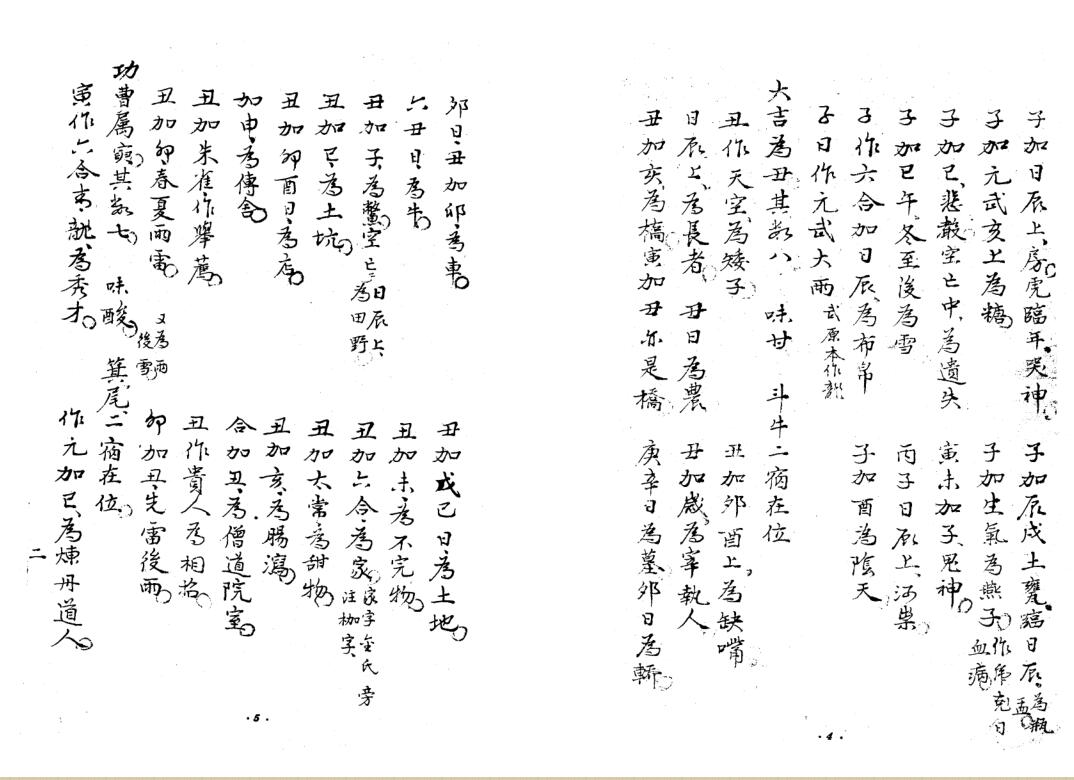 子加日辰上、房虎臨年、哭神、
子加辰戌土甕、臨日辰、為瓶盂
子加元武亥上為糖
子加生氣為燕子作虎剋日血病
子加巳、悲散空亡中、為遺失
寅未加子、鬼神
子加巳午、冬至後為雪
丙子日辰上、河祟
子作六合加日辰、為布帛
子加酉為陰天
子日作元武大雨 武原本作
大吉為丑其數八 味甘 斗牛二宿在位
丑作天空、為矮子
丑加卯酉上、為缺嘴
日辰上、為長者
丑日為農
丑加歲、為宰執人
丑加亥、為橋寅加丑亦是橋
庚辛日為墓卯日為轎
·4·
卯日、丑加卯、為車
丑加戊己日為土地
六丑日、為牛
丑加未、為不完物
丑加子、為鱉空亡、日辰上、為田野
丑加六合、為家家字金氏旁注枷字
丑加巳、為土坑
丑加太常為甜物
丑加卯酉日、為店
丑加亥、為腸瀉
加申、為傳舍
合加丑、為僧道院室
丑加朱雀、作舉薦
丑作貴人為相招
丑加卯、春夏雨雷 又為雨後雪
卯加丑、先雷後雨
功曹屬寅、其數七 味酸 箕尾、二宿在位
寅作六合青龍、為秀才
作元加巳、為煉丹道人
二
·5·